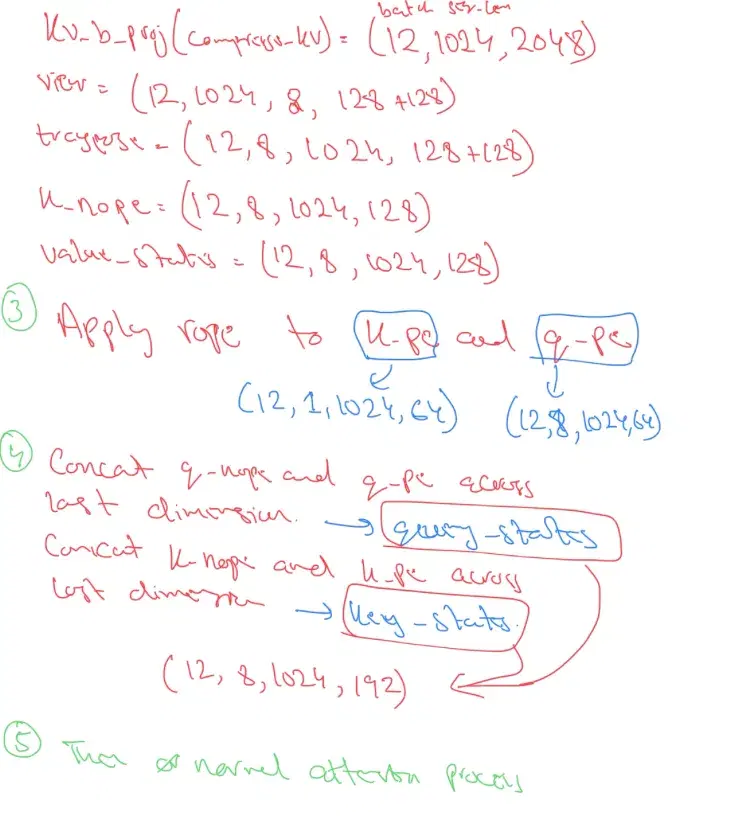 batch seq-len
kv_b_proj(compresso-kv) = (12, 1024, 2048)
view = (12, 1024, 8, 128+128)
traspose = (12, 8, 1024, 128+128)
k_nope = (12, 8, 1024, 128)
value_states = (12, 8, 1024, 128)
③ Apply rope to k-pe and q-pe
(12, 1, 1024, 64) (12, 8, 1024, 64)
④ Concat q-nope and q-pe across
last dimension. → query-states
Concat k-nope and k-pe across
last dimension → key-states.
(12, 8, 1024, 192)
⑤ Then normal attention process